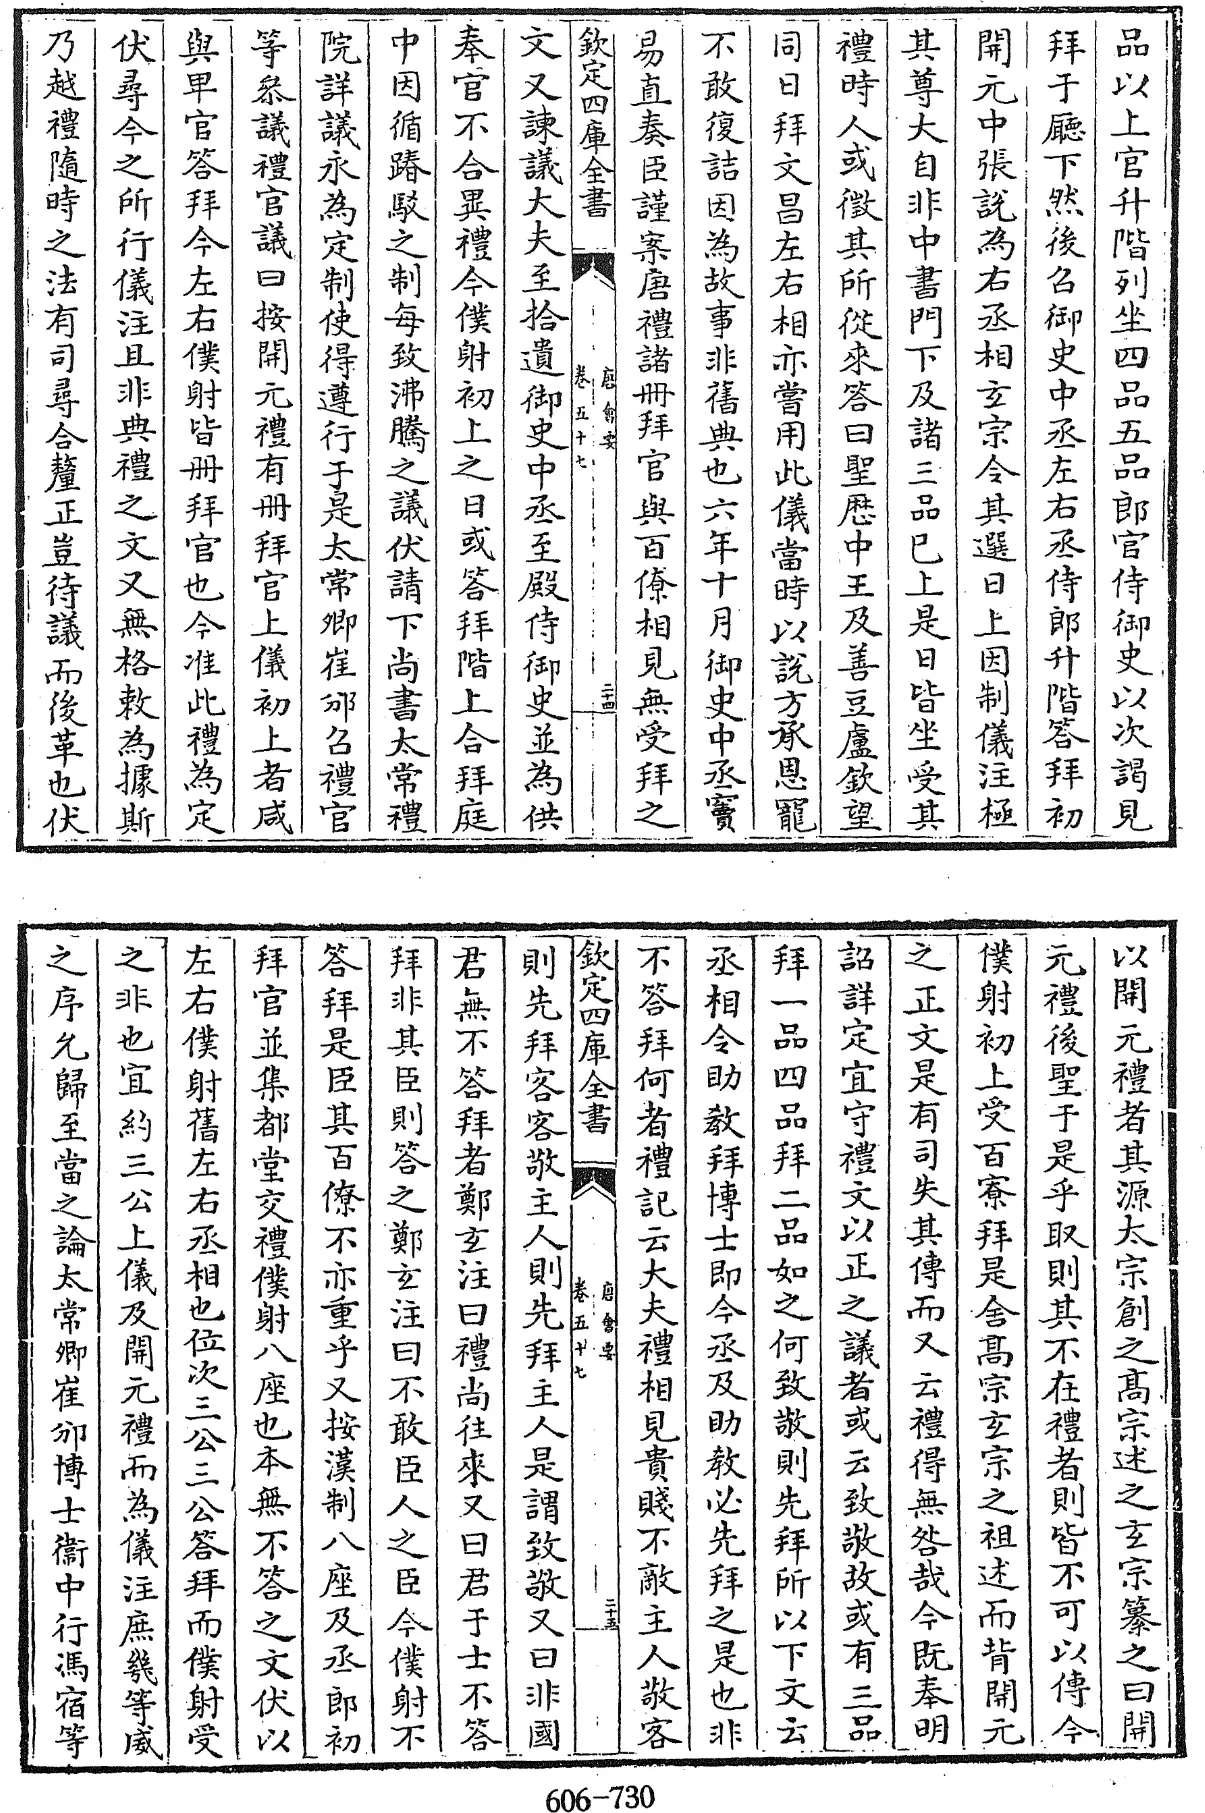 品以上官升階列坐四品五品郎官侍御史以次謁見
拜于廳下然後召御史中丞左右丞侍郎升階答拜初
開元中張說為右丞相玄宗令其選日上因制儀注極
其尊大自非中書門下及諸三品已上是日皆坐受其
禮時人或徵其所從來答曰聖厯中王及善豆盧欽望
同日拜文昌左右相亦嘗用此儀當時以說方承恩寵
不敢復詰因為故事非舊典也六年十月御史中丞竇
易直奏臣謹案唐禮諸冊拜官與百僚相見無受拜之
欽定四庫全書
唐會要
卷五十七
二十四
文又諫議大夫至拾遺御史中丞至殿侍御史並為供
奉官不合異禮今僕射初上之日或答拜階上合拜庭
中因循踳駁之制每致沸騰之議伏請下尚書太常禮
院詳議永為定制使得遵行于是太常卿崔邠召禮官
等叅議禮官議曰按開元禮有冊拜官上儀初上者咸
與卑官答拜今左右僕射皆冊拜官也今准此禮為定
伏尋今之所行儀注且非典禮之文又無格敕為據斯
乃越禮隨時之法有司尋合釐正豈待議而後革也伏
以開元禮者其源太宗創之髙宗述之玄宗纂之曰開
元禮後聖于是乎取則其不在禮者則皆不可以傳今
僕射初上受百寮拜是舍髙宗玄宗之祖述而背開元
之正文是有司失其傳而又云禮得無咎哉今既奉明
詔詳定宜守禮文以正之議者或云致敬故或有三品
拜一品四品拜二品如之何致敬則先拜所以下文云
丞相令助教拜博士即今丞及助教必先拜之是也非
不答拜何者禮記云大夫禮相見貴賤不敵主人敬客
欽定四庫全書
唐會要
卷五十七
二十五
則先拜客客敬主人則先拜主人是謂致敬又曰非國
君無不答拜者鄭玄注曰禮尚往來又曰君于士不答
拜非其臣則答之鄭玄注曰不敢臣人之臣今僕射不
答拜是臣其百僚不亦重乎又按漢制八座及丞郎初
拜官並集都堂交禮僕射八座也本無不答之文伏以
左右僕射舊左右丞相也位次三公三公答拜而僕射受
之非也宜約三公上儀及開元禮而為儀注庶幾等威
之序允歸至當之論太常卿崔邠博士衞中行馮宿等
606-730